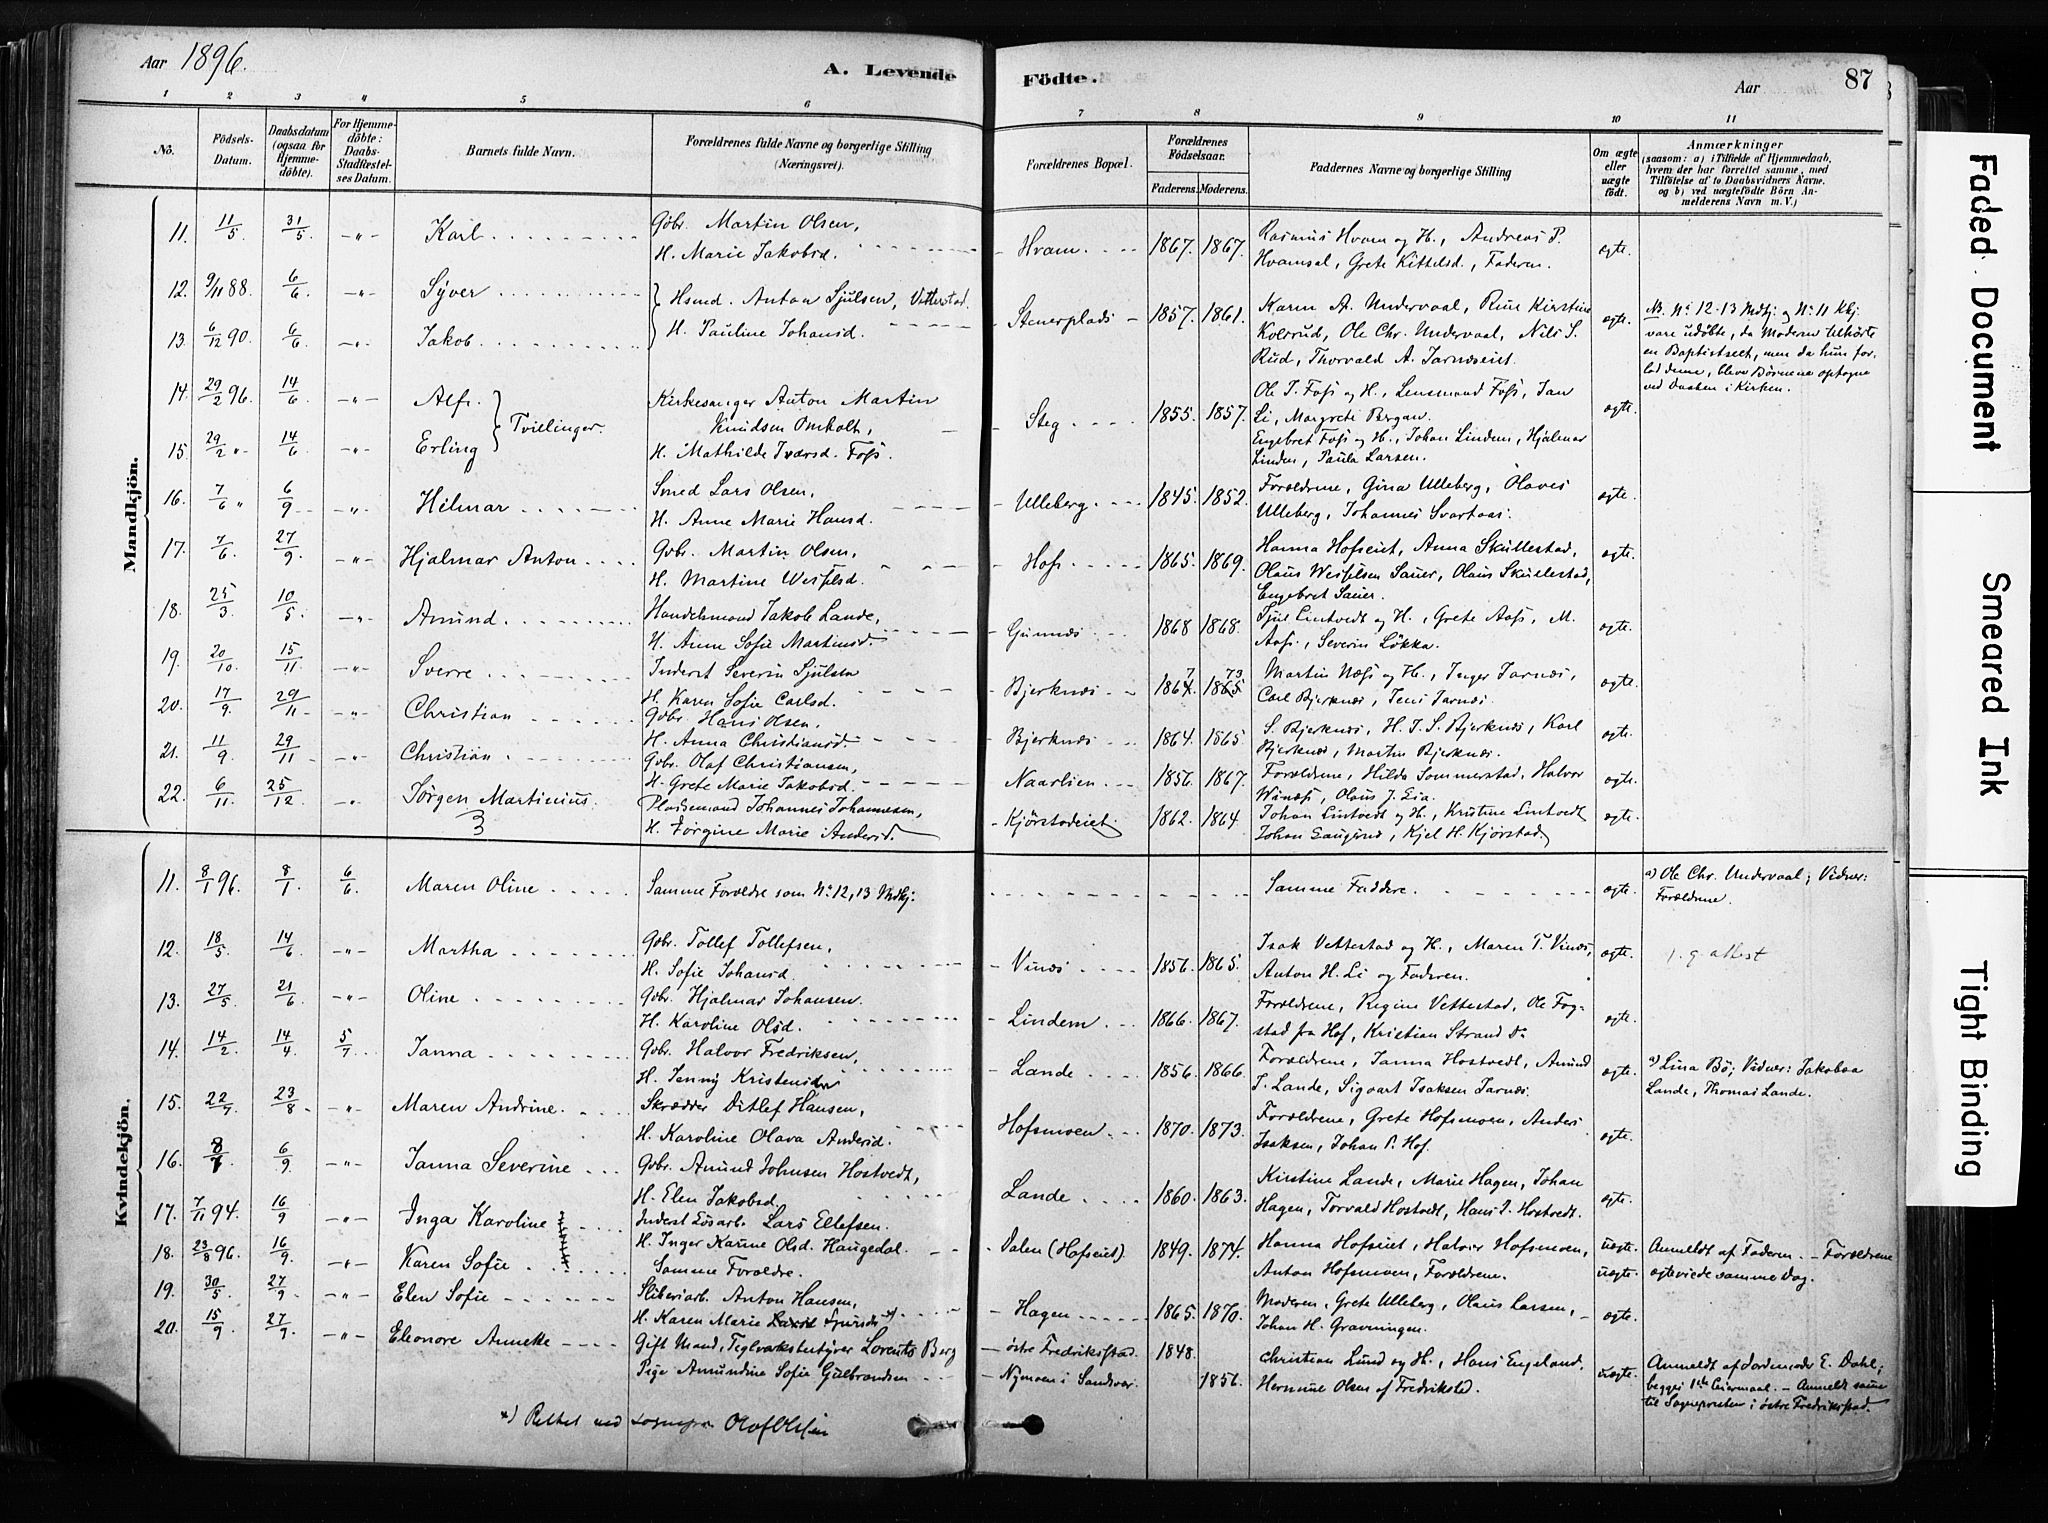 Aar 1896.
A. Levende Födte.
Aar
87
1 2 3 4 5 6 7 8 9 10 11
No.
Födsels-Datum.
Daabsdatum (ogsaa for Hjemmedöbte).
For Hjemmedöbte: Daabs-Stadfæstelses Datum.
Barnets fulde Navn.
Forældrenes fulde Navne og borgerlige Stilling (Næringsvei).
Forældrenes Bopæl.
Forældrenes Födselsaar.
Faderens. Moderens.
Faddernes Navne og borgerlige Stilling
Om ægte eller uægte födt.
Anmærkninger
(saasom: a) i Tilfælde af Hjemmedaab, hvem der har forrettet samme, med Tilföielse af to Daabsvidners Navne, og b) ved uægtefödte Börn Anmelderens Navn m. V.)
Mandkjön.
11. 11/5 31/5 -"- Karl Gbr. Martin Olsen, H. Marie Jakobsd. Hvam. 1867. 1867. Rasmus Hvam og H., Andreas P. Hvamsal, Grete Kittelsd., Faderen. ægte.
12. 9/11 88. 6/6 -"- Syver Hsmd. Anton Sjulsen, Vetterstad
13. 6/12 90. 6/6 -"- Jakob H. Pauline Johansd. Stenerplads 1857. 1861. Karen A. Undervaal, Rue Kirstine Kolsrud, Ole Chr. Undervaal, Nils S. Rud, Thorvald A. Jarnæseiet. ægte. NB. No 12-13 Mdkj. og No 11 Kkj. vare udøbte, da Moderen tilhørte en Baptistsekt, men da hun forlod denne, bleve Børnene optagne ved Daaben i Kirken.
14. 29/2 96. 14/6 -"- Alf. Tvillinger. Kirkesanger Anton Martin Knudsen Omholt,
15. 29/2 " 14/6 -"- Erling H. Mathilde Iversd. Foss. Steg 1855. 1857. Ole I. Foss og H., Lensmand Foss, Jan Li, Margrete Bergan. Engebret Foss og H., Johan Lindem, Hjalmar Linden, Paula Larsen. ægte.
16. 7/6 " 6/9 -"- Hilmar Smed Lars Olsen, H. Anne Marie Hansd. Ulleberg. 1845. 1852. Forældrene, Gina Ulleberg, Olaves Ulleberg, Johannes Svartaas. ægte.
17. 7/6. 27/9 -"- Hjalmar Anton Gbr. Martin Olsen, H. Martine Wesselsd. Hof. 1865. 1869. Hanna Hofseiet, Anna Skullestad, Olaus Wesselsen Sauer, Olaus Skullestad, Engebret Sauer. ægte.
18. 25/3 10/5 -"- Amund Handelsmand Jakob Lande, H. Anne Sofie Martinsd. Gunnæs 1868 1868. Sjul Lintvedt og H., Grete Aass, M. Aass, Severin Løkka. ægte.
19. 20/10. 15/11 -"- Sverre Inderst Severin Sjulsen H. Karen Sofie Carlsd. Bjerknæs 1864 7 1865 73 Martin Næss og H., Inger Jarnæs, Carl Bjerknæs, Jens Jarnæs. ægte.
20. 17/9. 29/11 -"- Christian Gbr. Hans Olsen. H. Anna Christiansd. Bjerknæs 1864. 1865. S. Bjerknæs, H. J. S. Bjerknæs, Karl Bjerknæs, Martin Bjerknæs. ægte.
21. 11/9 29/11 -"- Christian Gbr. Olaf Christiansen, H. Grete Marie Jakobsd. Naarlien 1856. 1867. Forældrene, Hilda Sommerstad, Halvor Winæss, Olaus J. Lia. ægte
22. 6/11. 25/12 -"- Jørgen Martinius. Pladsmand Johannes Johannesen, H. Jørgine Marie Andersd. Kjørstadeiet 1862. 1864. Johan Lintvedt og H., Kristine Lintvedt Johan Haugsrud, Kjel H. Kjørstad ægte.
Kvindekjön.
11. 8/1 96. 8/1 6/6 Maren Oline Samme Forældre som No. 12, 13 Mdkj. Samme Faddere. ægte. a) Ole Chr. Undervaal; Vidner: Forældrene.
12. 18/5 14/6 -"- Martha Gbr. Tollef Tollefsen, H. Sofie Johansd. Vinæs 1856. 1865. Isak Vettestad og H., Maren T. Vinæs, Anton H. Li og Faderen. ægte. attest
13. 27/5. 21/6 -"- Oline Gbr. Hjalmar Johansen. H. Karoline Olsd. Lindem 1866. 1867. Forældrene, Regine Vettestad, Ole Fogstad fra Hof, Kristian Strand Do ægte.
14. 14/2 14/4 5/7 Janna Gbr. Halvor Fredriksen, H. Jenny Kristensd. Lande 1856. 1866. Forældrene, Janna Hostvedt, Amund T. Lande, Sigvart Isaksen Jarnæs. ægte. a) Lina Bö; Vidner: Jakobea Lande, Thomas Lande.
15. 22/7. 23/8 -"- Maren Andrine. Skrædder Ditlef Hansen, H. Karoline Olava Andersd. Hofsmoen 1870. 1873. Forældrene, Grete Hofsmoen, Anders Isaksen, Johan P. Hof. ægte.
16. 8/7. 6/9 -"- Janna Severine Gbr. Amund Johnsen Hostvedt, H. Elen Jakobsd. Lande 1860. 1863. Kirstine Lande, Marie Hagen, Johan Hagen, Torvald Hostvedt, Hans J. Hostvedt. ægte.
17. 7/11 94. 16/9 -"- Inga Karoline Inderst Løsarb. Lars Ellefsen. H. Inger Karine Olsd. Haugedal. Dalen (Hofseiet). 1849. 1874. Hanna Hofseiet, Halvor Hofsmoen, Anton Hofsmoen, Forældrene. uægte. Anmeldt af Faderen. - Forældrene ægteviede samme Dag.
18. 23/8 96. 16/9 -"- Karen Sofie Samme Forældre. uægte.
19. 30/5 27/9 -"- Elen Sofie Sliberiarb. Anton Hansen, H. Karen Marie *) Hagen 1865. 1870. Moderen, Grete Ulleberg, Olaus Larsen, Johan H. Gravningen. ægte.
20. 15/9 27/9. -"- Eleonore Annette Gift Mand, Teglværksbestyrer Lorents Berg Pige Amundine Sofie Gulbrandsen østre Fredriksstad. Nymoen i Sandsvær. 1848. 1856. Christian Lund og H., Hans Engeland, Hermine Olsen af Fredriksstad. uægte. Anmeldt af Jordemoder E. Dahl; begges 1ste Leiermaal. - Anmeldt samme til Sognepresten i østre Fredriksstad.
*) Rettet ved sognepr. Olaf Olssen
Faded Document
Smeared Ink
Tight Binding